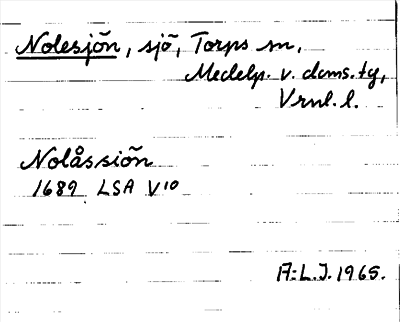 Nolesjön, sjö, Torps sn,
Medelp. v. doms. tg,
Vrnl. l.
Nolåssiön
1689 LSA V10
A:L.J. 1965.